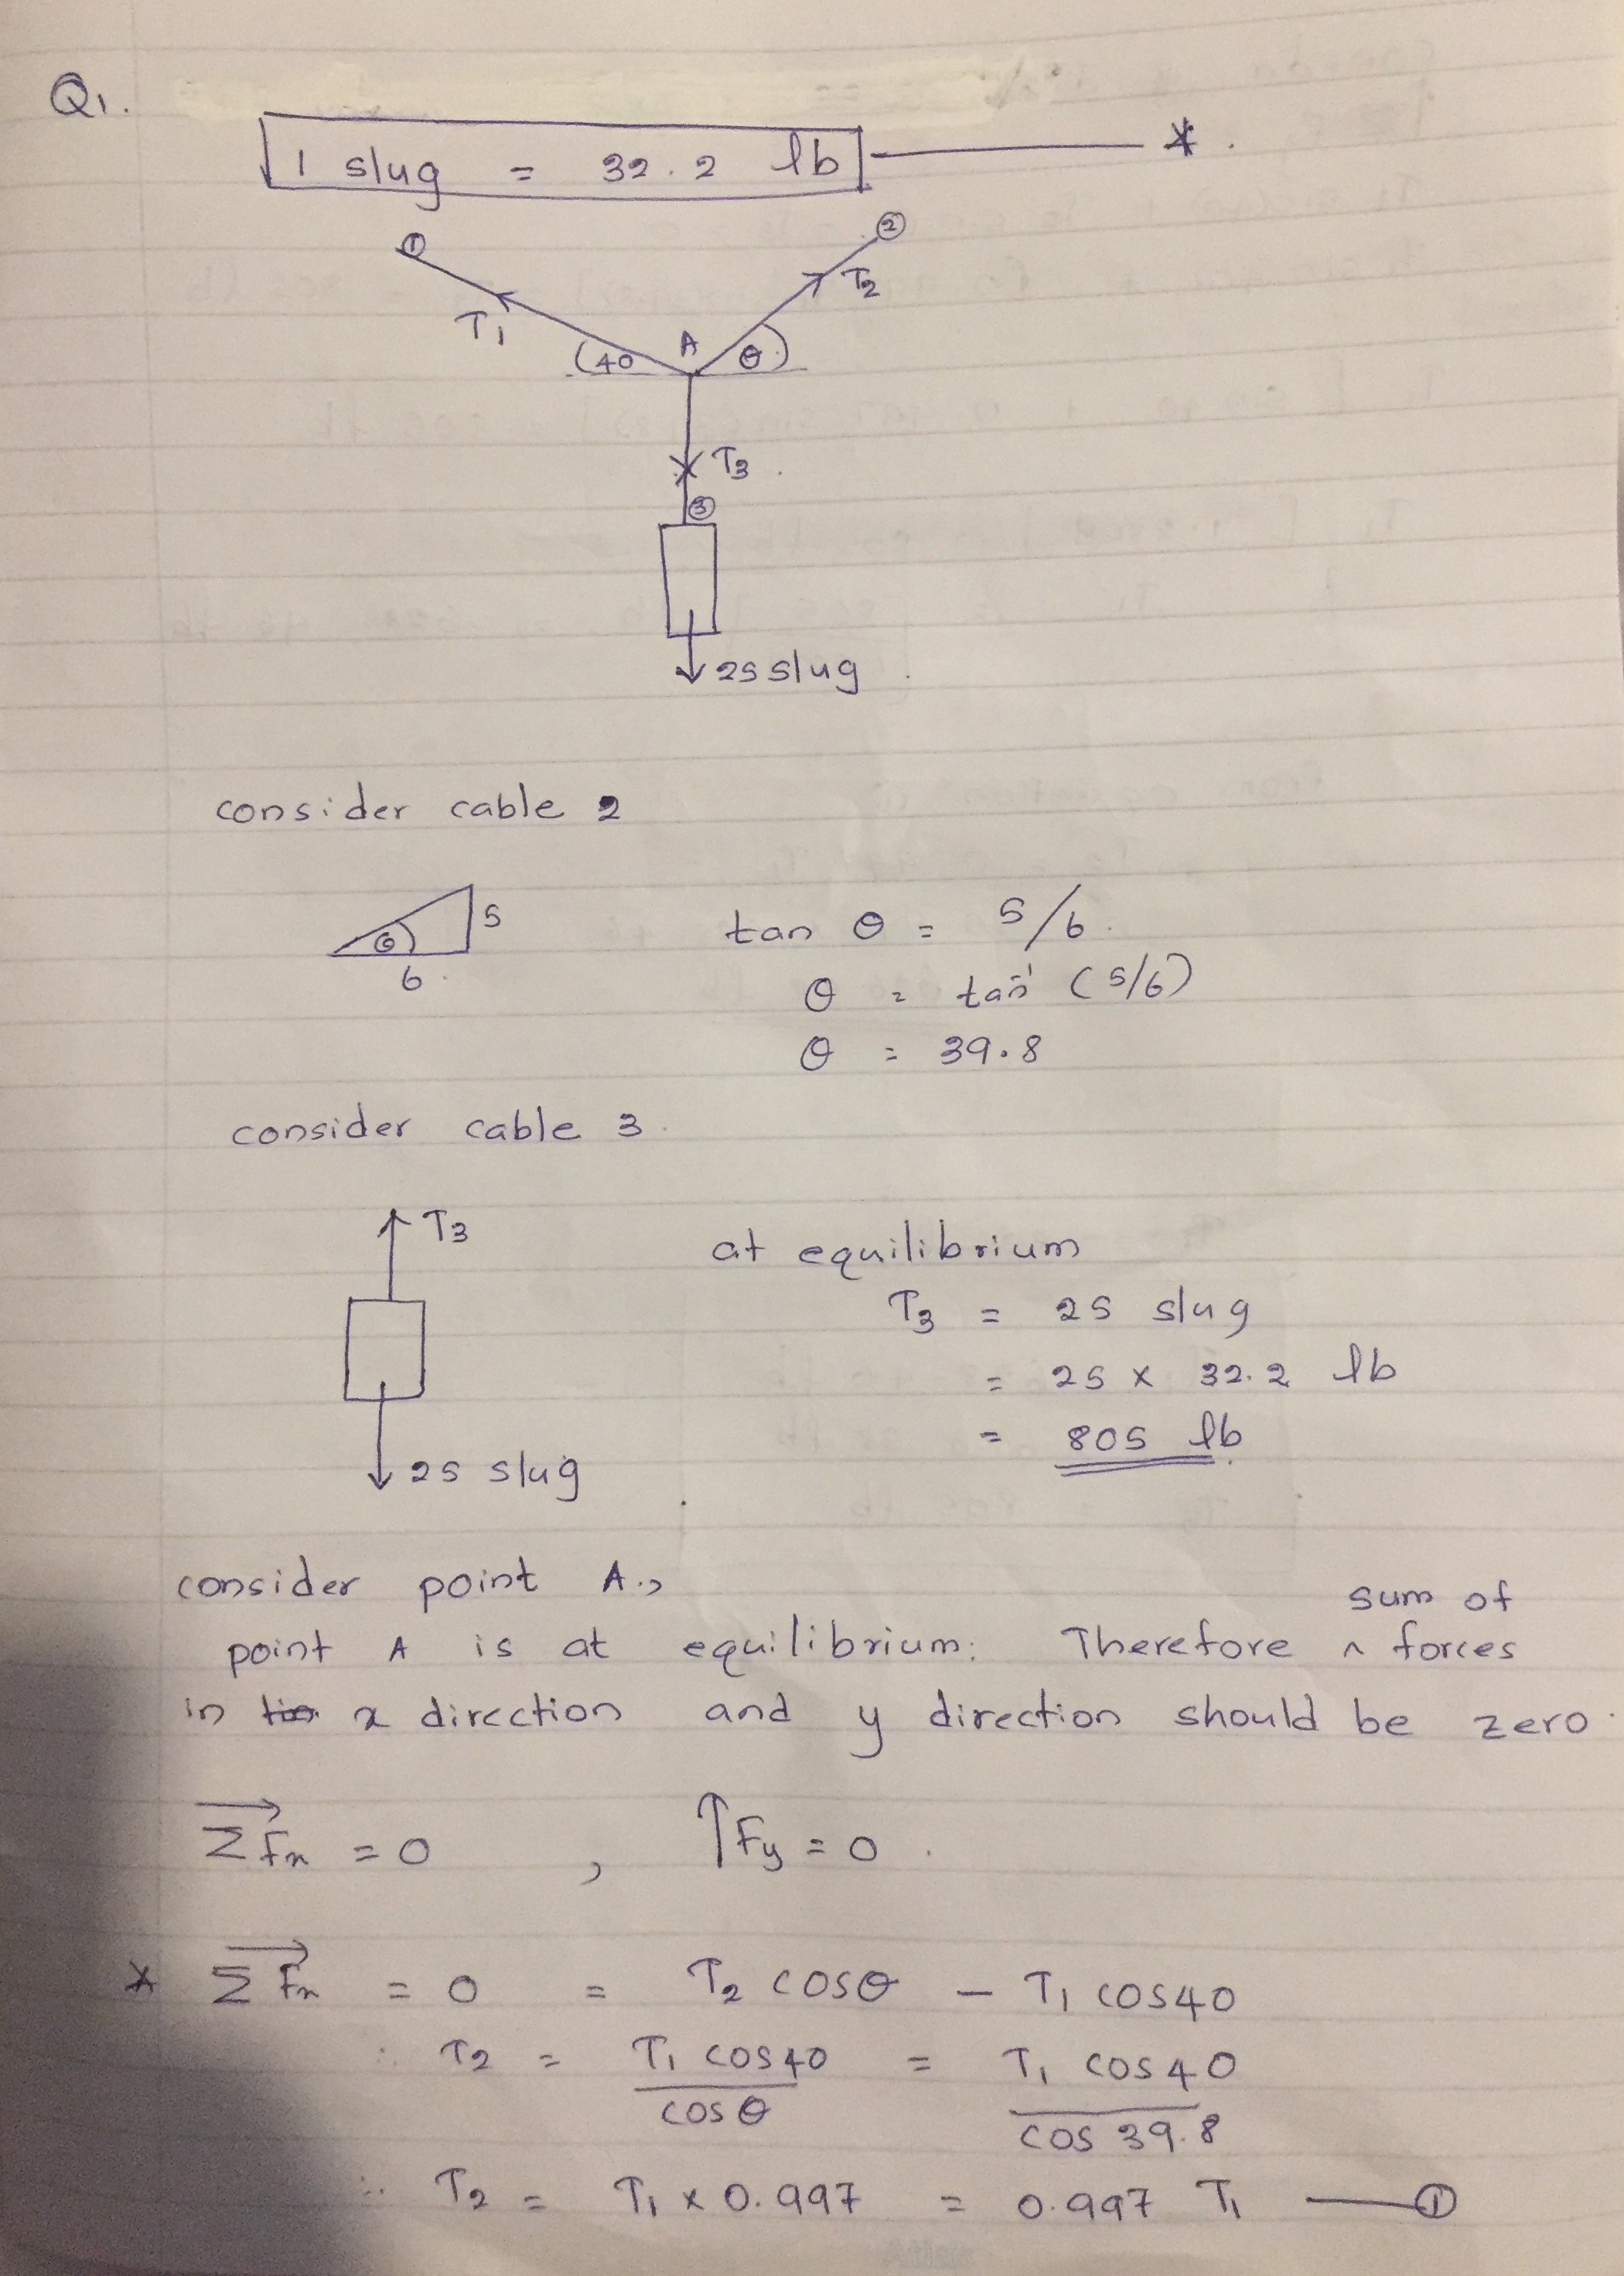 Q1.
1 slug = 32.2 lb *.
① ②
T1 T2
40 A θ
T3
③
25 slug
consider cable 2
θ 5
6
tan θ = 5/6
θ = tan⁻¹ (5/6)
θ = 39.8
consider cable 3
T3
25 slug
at equilibrium
T3 = 25 slug
= 25 x 32.2 lb
= 805 lb
consider point A.,
point A is at equilibrium. Therefore ^ sum of forces
in x direction and y direction should be zero.
ΣFx = 0 , ↑Fy = 0.
* ΣFx = 0 = T2 cosθ - T1 cos40
∴ T2 = T1 cos40 / cosθ = T1 cos40 / cos 39.8
∴ T2 = T1 x 0.997 = 0.997 T1 — ①